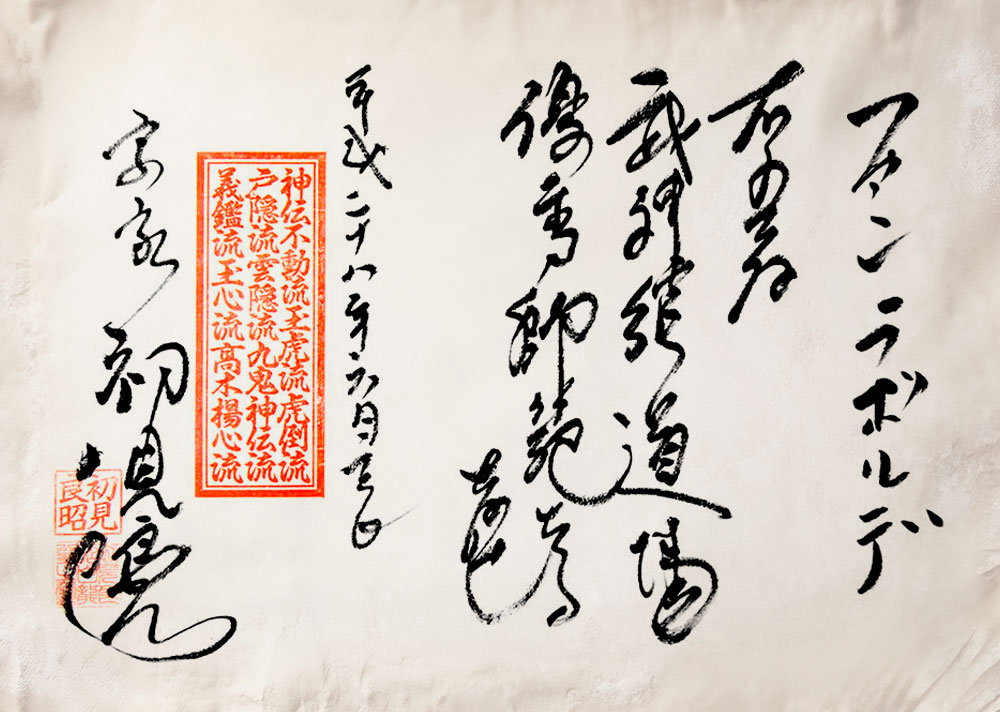 フアン ラボルデ
右の者
武神舘道場
優秀師範
平成二十八年六月三日
神伝不動流玉虎流虎倒流
戸隠流雲隠流九鬼神伝流
義鑑流玉心流高木揚心流
宗家 初見良昭
初見
良昭